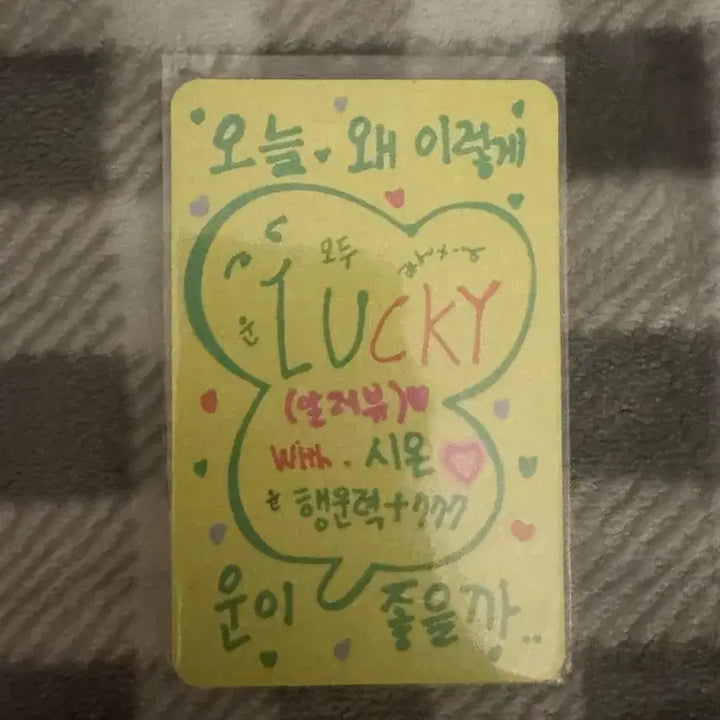 오늘 왜 이렇게
모두
LUCKY
운
(알러뷰)
With. 시온
행운력+777
운이 좋을까..